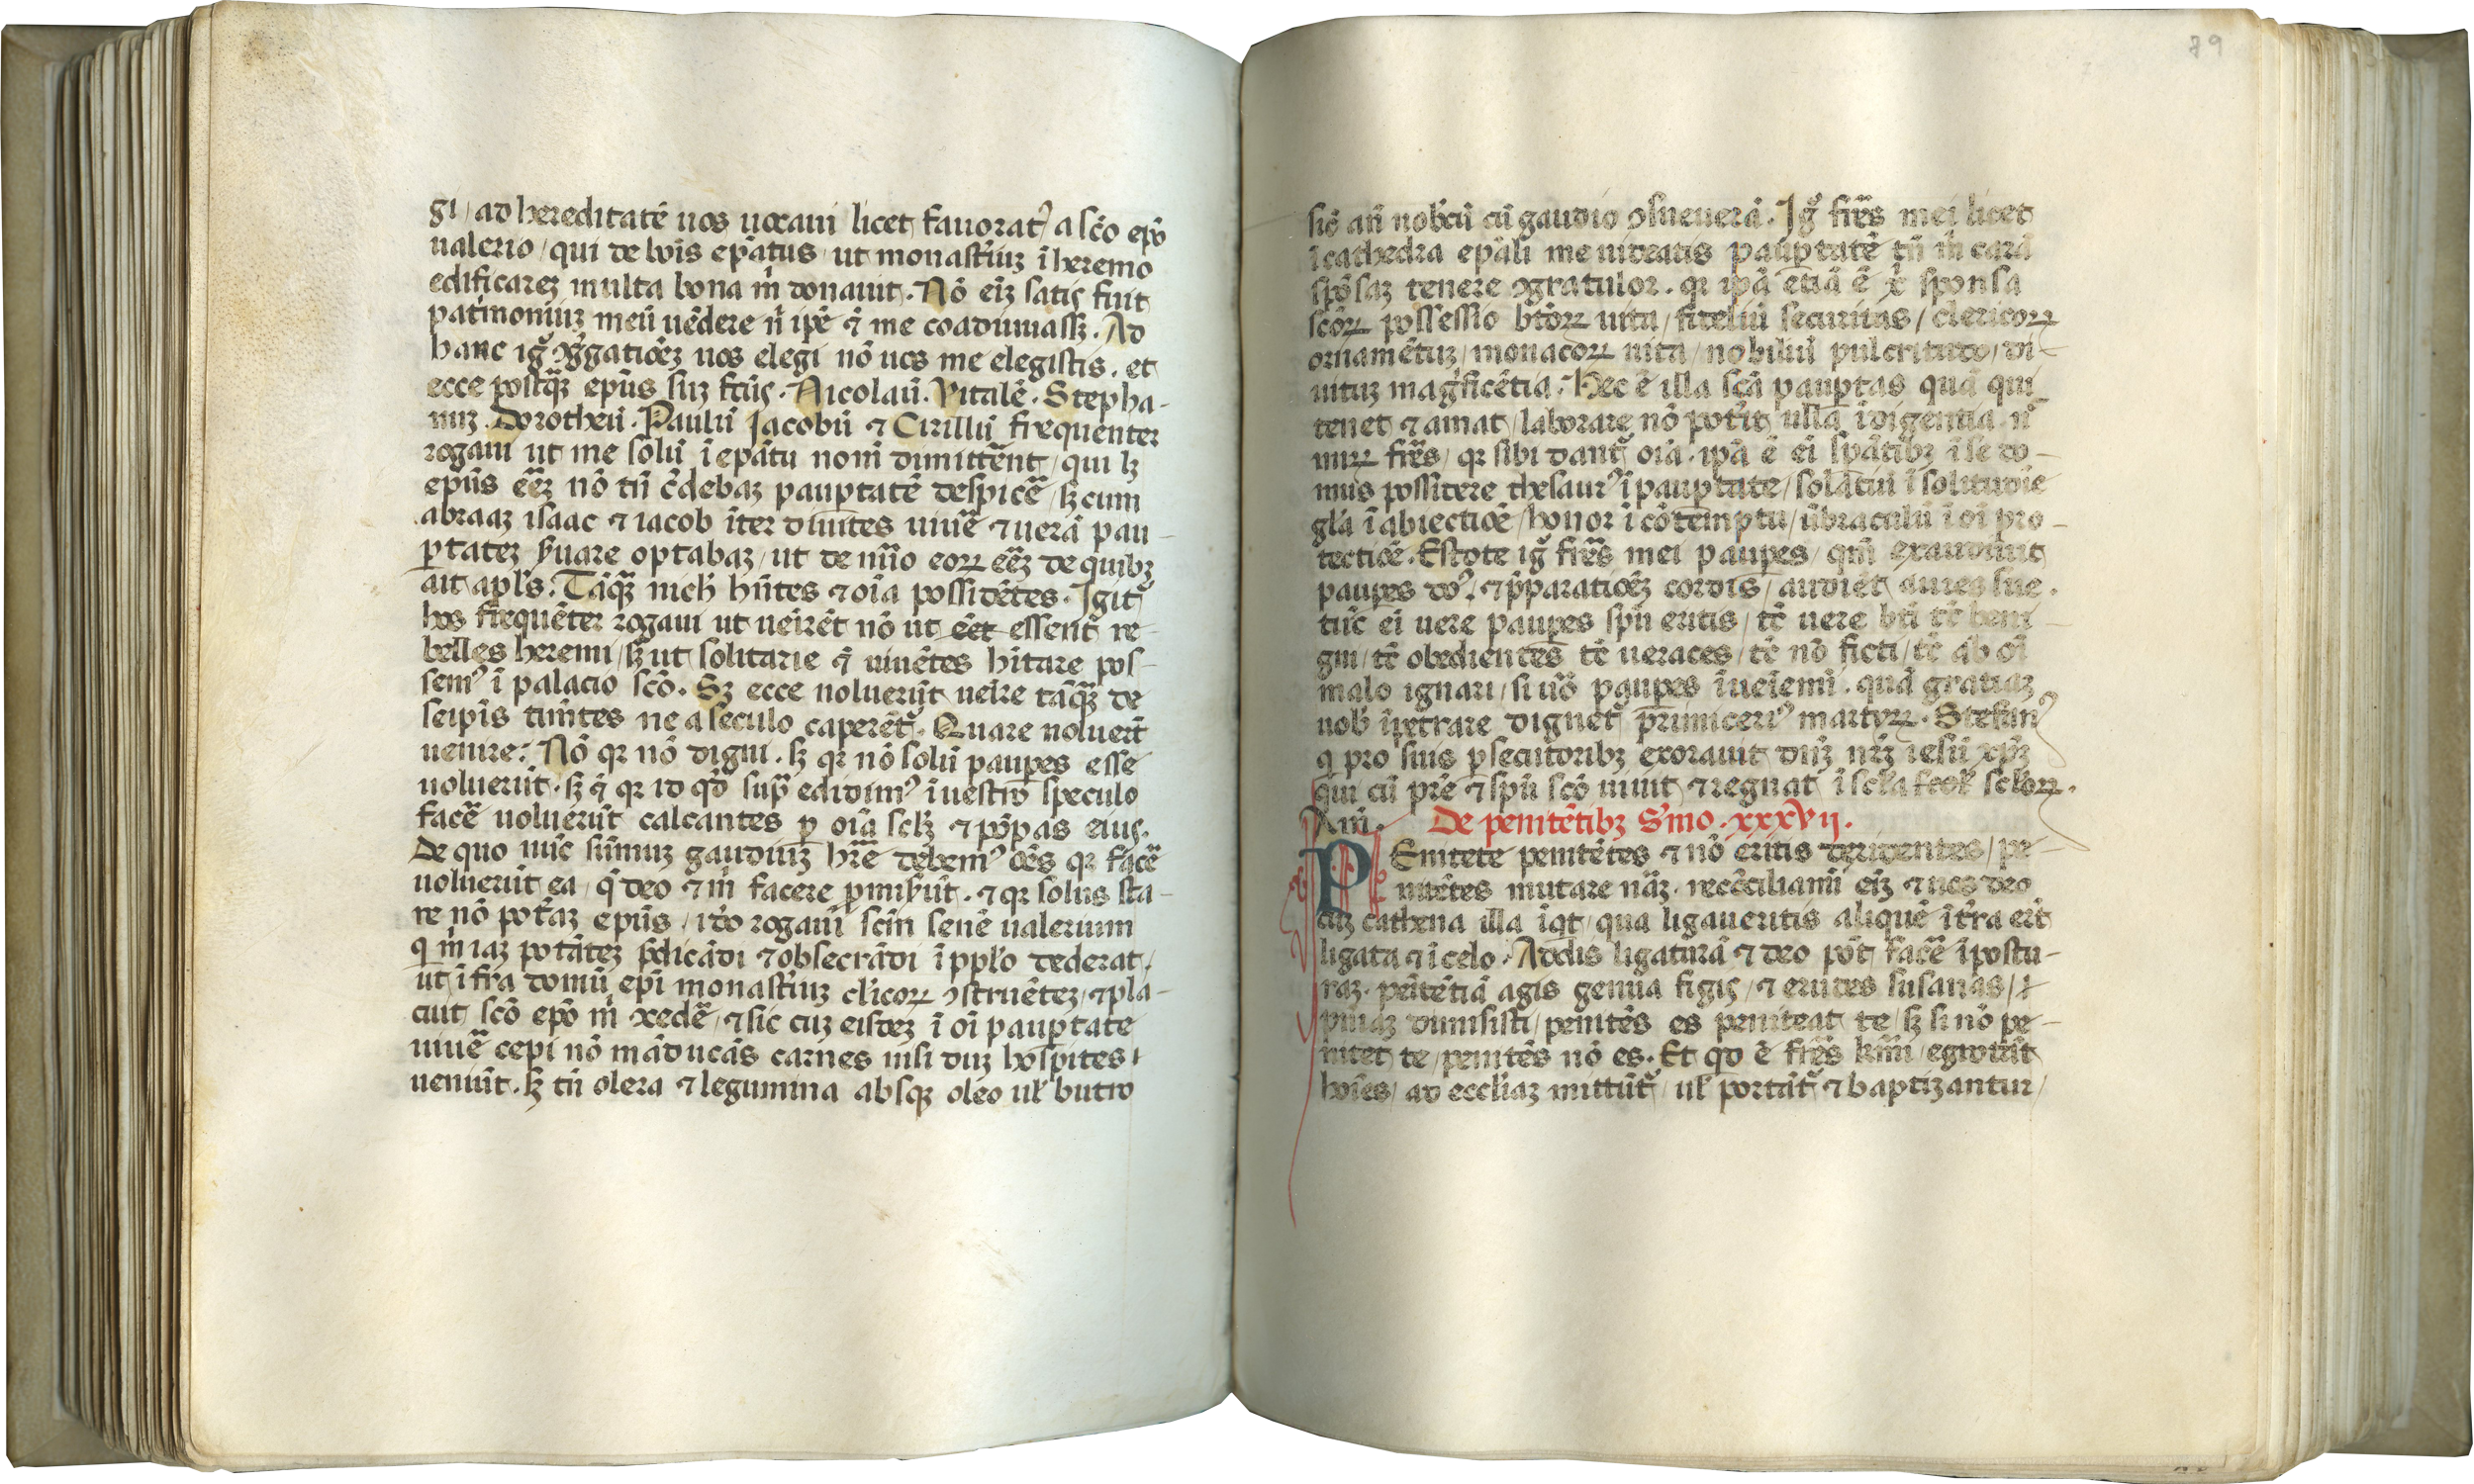 gi / ad hereditatē uos uocaui licet fauorat᾽ a sc̄o ep̄o
ualerio / qui de bōis ep̄atus ut monast̄iuʒ ī heremo
edificareʒ multa bona m̄ donauit. Nō eīʒ satis fuit
pat̄moniuʒ meū uēdere n̄ ip̄e ⁊ me coadunassʒ. Ad
hanc ig̊ ↄ̄gatiōeʒ uos elegi nō uos me elegistis. et
ecce postq̄ʒ ep̄us suʒ fc̄us. Nicolaū. Vitalē. Stepha-
nuʒ. Dorotheū. Paulū Jacobū ⁊ Cirillū frequenter
rogaui ut me solū ī ep̄atu non dimittēnt / qui lʒ
ep̄us eēʒ nō tn̄ c̄debaʒ paup̱tatē despicē / sʒ cum
abraaʒ isaac ⁊ iacob īter diuites uiuē ⁊ uerā pau-
p̱tateʒ s̄uare optabaʒ / ut de nūo eoꝝ eēʒ de quibʒ
ait apl̄s. Tāq̄ʒ nich̄ hn̄tes ⁊ oīa possidētes. Igit᾽
hos frequēter rogaui ut ueīrēt nō ut eēt essent᾽ re-
belles heremi / sʒ ut solitarie ⁊ uiuētes hītare pos-
sem᾽ ī palacio sc̄o. Sʒ ecce noluerūt ueīre tāq̄ʒ de
seip̄is tim̄tes ne a seculo caperēt᾽. Quare noluert̄
uenire. Nō qꝛ nō digni. sʒ qꝛ nō solū paup̱es esse
uoluerūt. sʒ ⁊ qꝛ id qd̄ sup̄ edidim᾽ ī uestro speculo
facē uoluerūt calcantes ꝑ oīa sclʒ ⁊ pōpas eius.
De quo nūc sūmuʒ gaudiuʒ hr̄e debem᾽ oēs qꝛ facē
uoluerūt ea / q̄ deo ⁊ m̄ facere ꝑmis̄ūt. ⁊ qꝛ solus sta-
re nō pot̄aʒ ep̄us / ido rogaui sc̄m senē ualerium
q m̄ iaʒ potātēʒ p̄dicādi ⁊ obsecrādi ī pp̄lo dederat /
ut īfra domū ep̄i monast̄iuʒ cl̄icoꝝ ↄstruētēʒ / ⁊ pla-
cuit sc̄o ep̄o m̄ ↄcedē / ⁊ sic cuʒ eisdeʒ ī oī paup̱tate
uiuē cepi nō māducās carnes nisi duʒ hospites
ueniūt. sʒ tn̄ olera ⁊ legumina absq̄ʒ oleo ul̄ butro
79
siō an̄ nobcū cū gaudio ↄsueuerā. Ig̊ fr̄es mei licet
ī cathedra ep̄ali me uideatis paup̱tatē tn̄ m̄ carā
spōsaʒ tenere ↄgratulor. qꝛ ip̄a etiā ē x̄ sponsa
sc̄oꝝ possessio bt̄oꝝ uita / fideliū securitas / clericoꝝ
ornamētuʒ / monacoꝝ uita / nobiliū pulcritudo / di-
uituʒ mag̊ficētia. Hec ē illa sc̄a paup̱tas quā qui
tenet ⁊ amat / laborare nō pot̄it ulla īdigentia n̄
miꝝ fr̄es / qꝛ sibi dant᾽ oīa. ip̄a ē eī sp̄atibʒ ī se do-
mus possidere thesaur᾽ ī paup̱tate / solatiū ī solitudīe
gl̄a ī abiectiōe / honor ī cōtemptu / ūbraculū ī oī pro-
tectiōe. Estote ig̊ fr̄es mei paup̱es / qm̄ exaudiuit
paup̱es do᾽. ⁊ p̄paratiōeʒ cordis / audiēt aures sue.
tūc eī uere paup̱es sp̄u eritis / tc̄ uere bt̄i tc̄ beni-
gni / tc̄ obedientes tc̄ ueraces / tc̄ nō ficti / tc̄ ab oī
malo ignari / si uō paup̱es īueīemī. quā gratiaʒ
nob̄ īpetrare dignet᾽ p̄rimiceri᾽ martyꝝ. Stefan᾽
q pro suis ꝑsecutoribʒ exorauit dn̄ʒ nr̄ʒ iesū xp̄ʒ
qui cū pr̄e ⁊ sp̄u sc̄o uiuit ⁊ regnat ī scl̄a scl̄oꝝ.
Am̄. De penitētibʒ S̄mo. xxxvij.
PEnitete penitētes ⁊ nō eritis deridentes / pe-
nitētes mutare uāʒ. recōciliamī eīʒ ⁊ uos deo
cuʒ cathena illa īqt / qua ligaueritis aliquē ī tr̄a erit
ligata ⁊ ī celo. Addis ligaturā ⁊ deo pōt facē īpostu-
raʒ. penitētiā agis genua figis / ⁊ erudes susanas /
puiaʒ dimisisti / penitēs es peniteat te / sʒ si nō pe-
nitet te / penitēs nō es. Et qd̄ ē fr̄es kmī / egrotāt
hoīes / ad eccl̄iaʒ mittūt᾽ / ul̄ portāt᾽ ⁊ baptizantur /